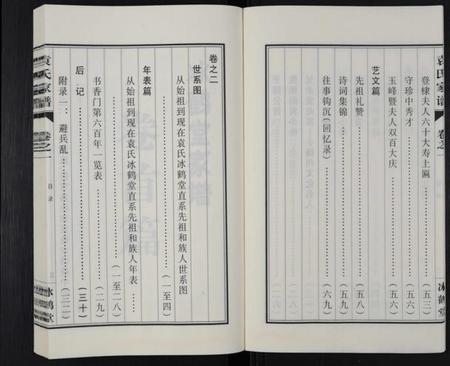 袁氏家谱
卷之一
冰鹤堂
登棣夫人六十大寿上匾……（五三）
守珍中秀才……（五六）
玉峰暨夫人双百大庆……（五六）
艺文篇
先祖礼赞……（五八）
诗词集锦……（五九）
往事钩沉（回忆录）……（六九）
卷之二
世系图
从始祖到现在袁氏冰鹤堂直系先祖和族人世系图……（一至四）
年表篇
从始祖到现在袁氏冰鹤堂直系先祖和族人年表……（一至二八）
书香门第六百年一览表……（二九）
后记……（三十）
附录一：避兵乱……（三二）
袁氏家谱
卷之一
目录
冰鹤堂